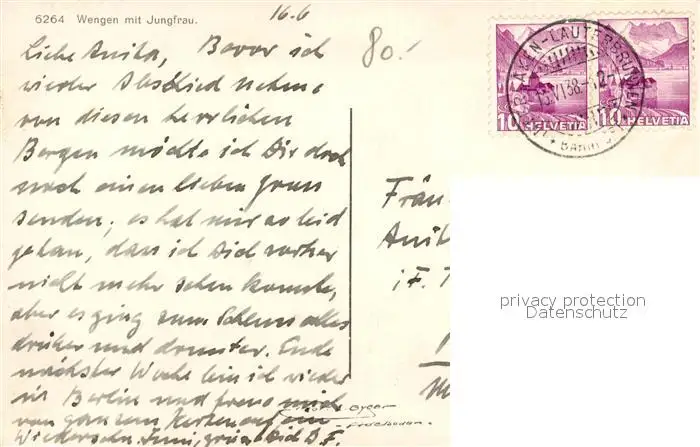 6264 Wengen mit Jungfrau.
16.6
80.-
Liebe Anita, Bevor ich
wieder Abschied nehme
von diesen herrlichen
Bergen möchte ich Dir doch
noch einen lieben Gruss
senden; es hat mir so leid
getan, dass ich Dich vorher
nicht mehr sehen konnte,
aber es ging zum Schluss alles
drüber und drunter. Ende
nächster Woche bin ich wieder
in Berlin und freue mich
von ganzem Herzen auf ein
Wiedersehn. Innigst grüsst Dich B.F.
INTERLAKEN-LAUTERBRUNNEN
15.VI.38.-12
BAHN
10 HELVETIA
10 HELVETIA
Fräu
Anit
i. F.
privacy protection
Datenschutz
Gyger
Adelboden.